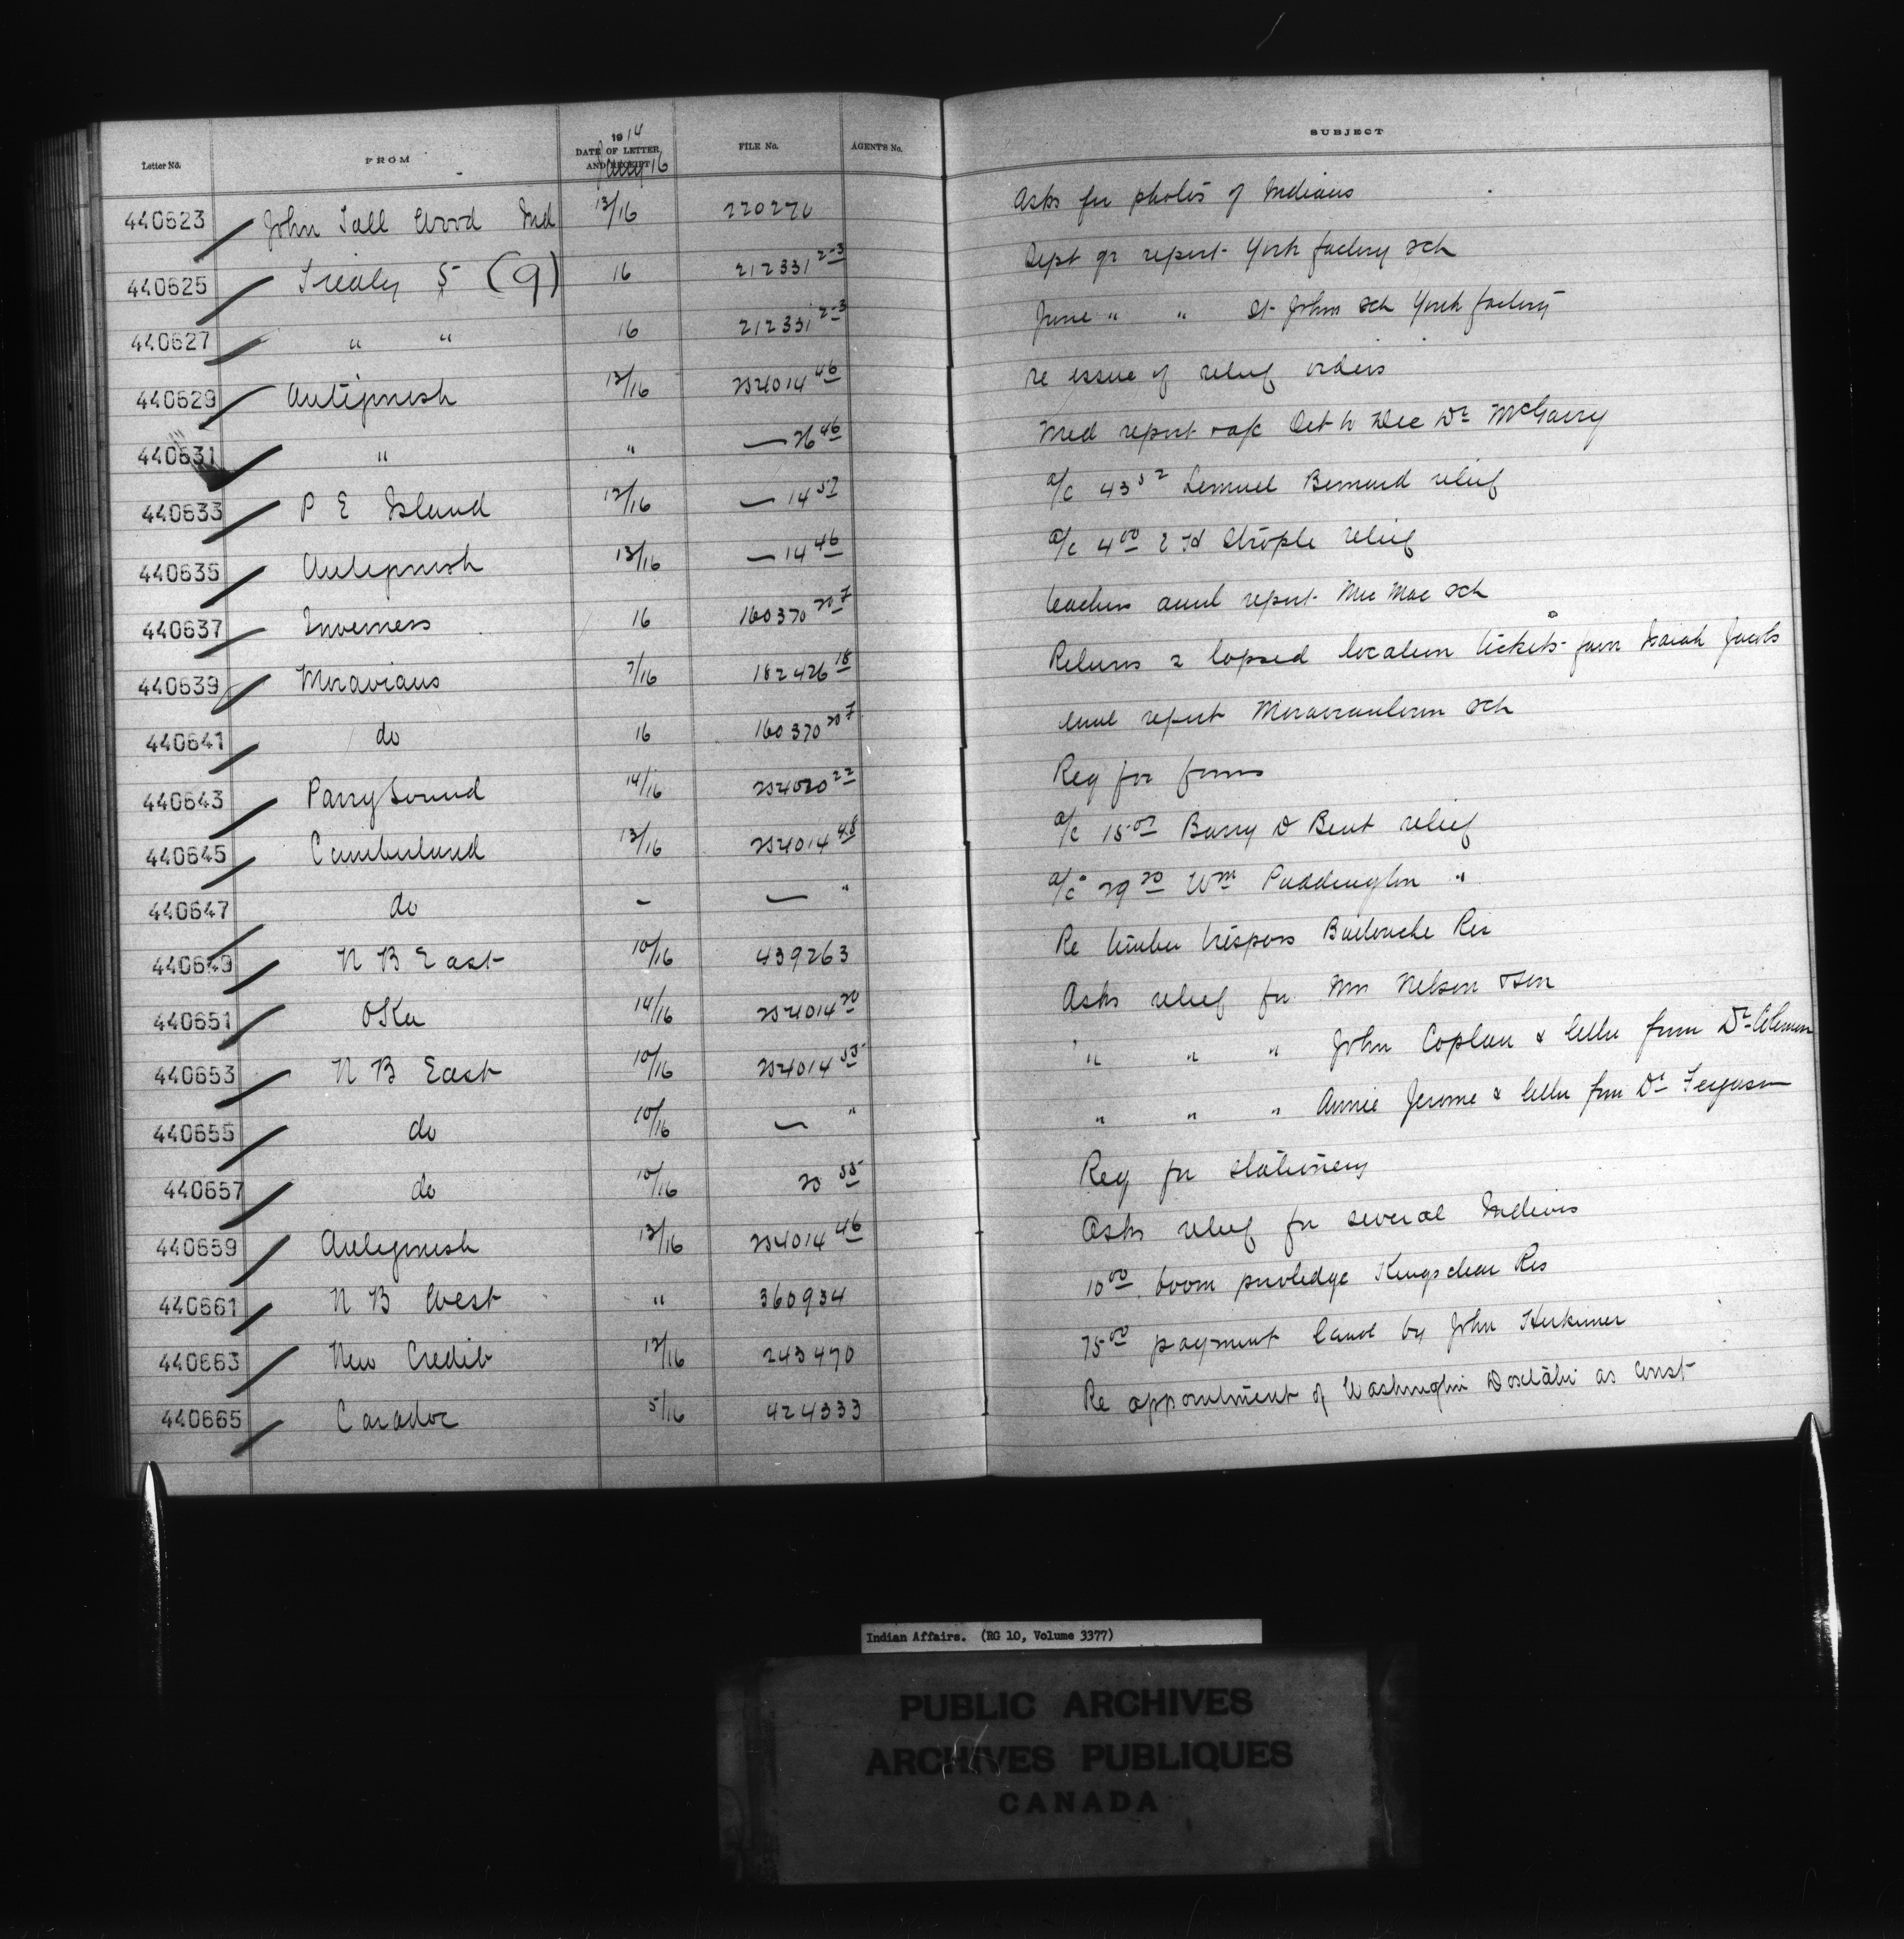 Letter No. FROM 1914 DATE OF LETTER AND RECEIPT Jany 16 FILE No. AGENT'S No. SUBJECT
440623 John Tall Wood Ind 13/16 220276 Asks for photos of Indians
440625 Treaty 5 (9) 16 212331 2-3 Sept qr report York factory sch
440627 " " 16 212331 2-3 June " " St Johns sch York factory
440629 Antigonish 13/16 254014 46 re issue of relief orders
440631 " " — 26 46 Med report Oct to Dec Dr McGarry
440633 P E Island 12/16 — 14 57 a/c 43 52 Lemuel Bernard relief
440635 Antigonish 13/16 — 14 46 a/c 4 00 E H Strople relief
440637 Inverness 16 160370 20 7 teachers annl report Mic Mac sch
440639 Moravians 7/16 182426 18 Returns 2 lapsed location tickets from Isaiah Jacobs
440641 do 16 160370 20 7 annl report Moraviantown sch
440643 Parry Sound 14/16 254020 22 Req for forms
440645 Cumberland 13/16 254014 48 a/c 15 00 Barry D Bent relief
440647 do – — " a/c 29 20 Wm Puddington "
440649 N B East 10/16 439263 Re timber trespass Buctouche Res
440651 Oka 14/16 254014 20 Asks relief for Mrs Nelson
440653 N B East 10/16 254014 55 " " " John Coplan & letter from Dr
440655 do 10/16 — " " " " Annie Jerome & letter from Dr Ferguson
440657 do 10/16 20 55 Req for stationery
440659 Antigonish 13/16 254014 46 Asks relief for several Indians
440661 N B West " 360934 10 00 boom priviledge Kingsclear Res
440663 New Credit 12/16 243470 75 00 payment land by John Herkimer
440665 Caradoc 5/16 424333 Re appointment of Washington Doxtator as Const
Indian Affairs. (RG 10, Volume 3377)
PUBLIC ARCHIVES
ARCHIVES PUBLIQUES
CANADA